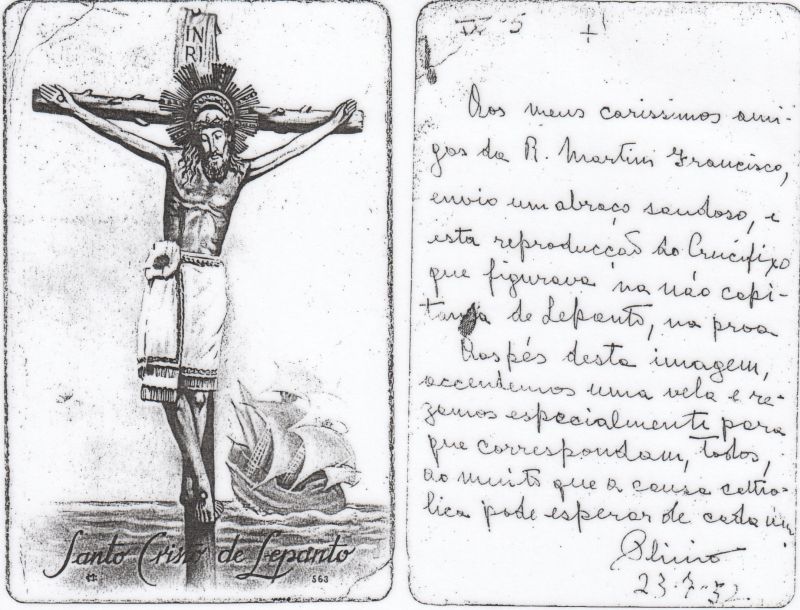 IN
RI
Santo Cristo de Lepanto
563
IX 5
+
Aos meus carissimos ami-
gos da R. Martim Francisco,
envio um abraço saudoso, e
esta reproducção do Crucifixo
que figurava na náo capi-
tanea de Lepanto, na proa
Aos pés desta imagem,
accendemos uma vela e re-
zamos especialmente para
que correspondam, todos,
ao muito que a causa catho-
lica pode esperar de cada um
Plinio
23-7-52.